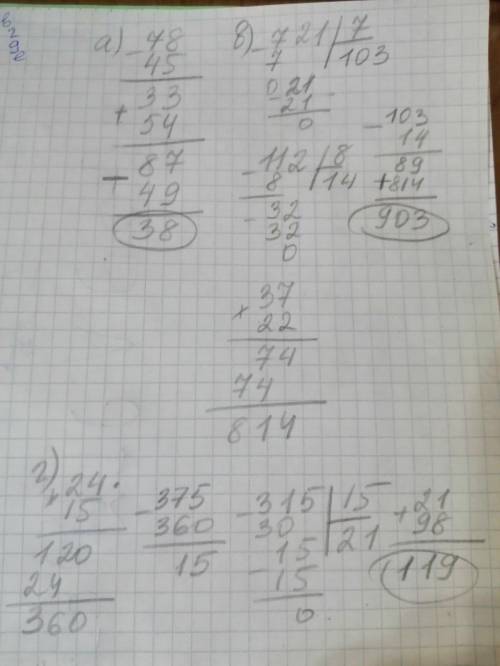 а) - 78
45
33
+ 54
- 87
49
38
в) - 721 | 7
7 103
021
- 21
0
- 112 | 8
8 14
- 32
32
0
- 103
14
89
+ 814
903
× 37
22
74
74
814
г) × 24.
15
120
24
360
- 375
360
15
- 315 | 15
30 21
- 15
15
0
+ 21
98
119